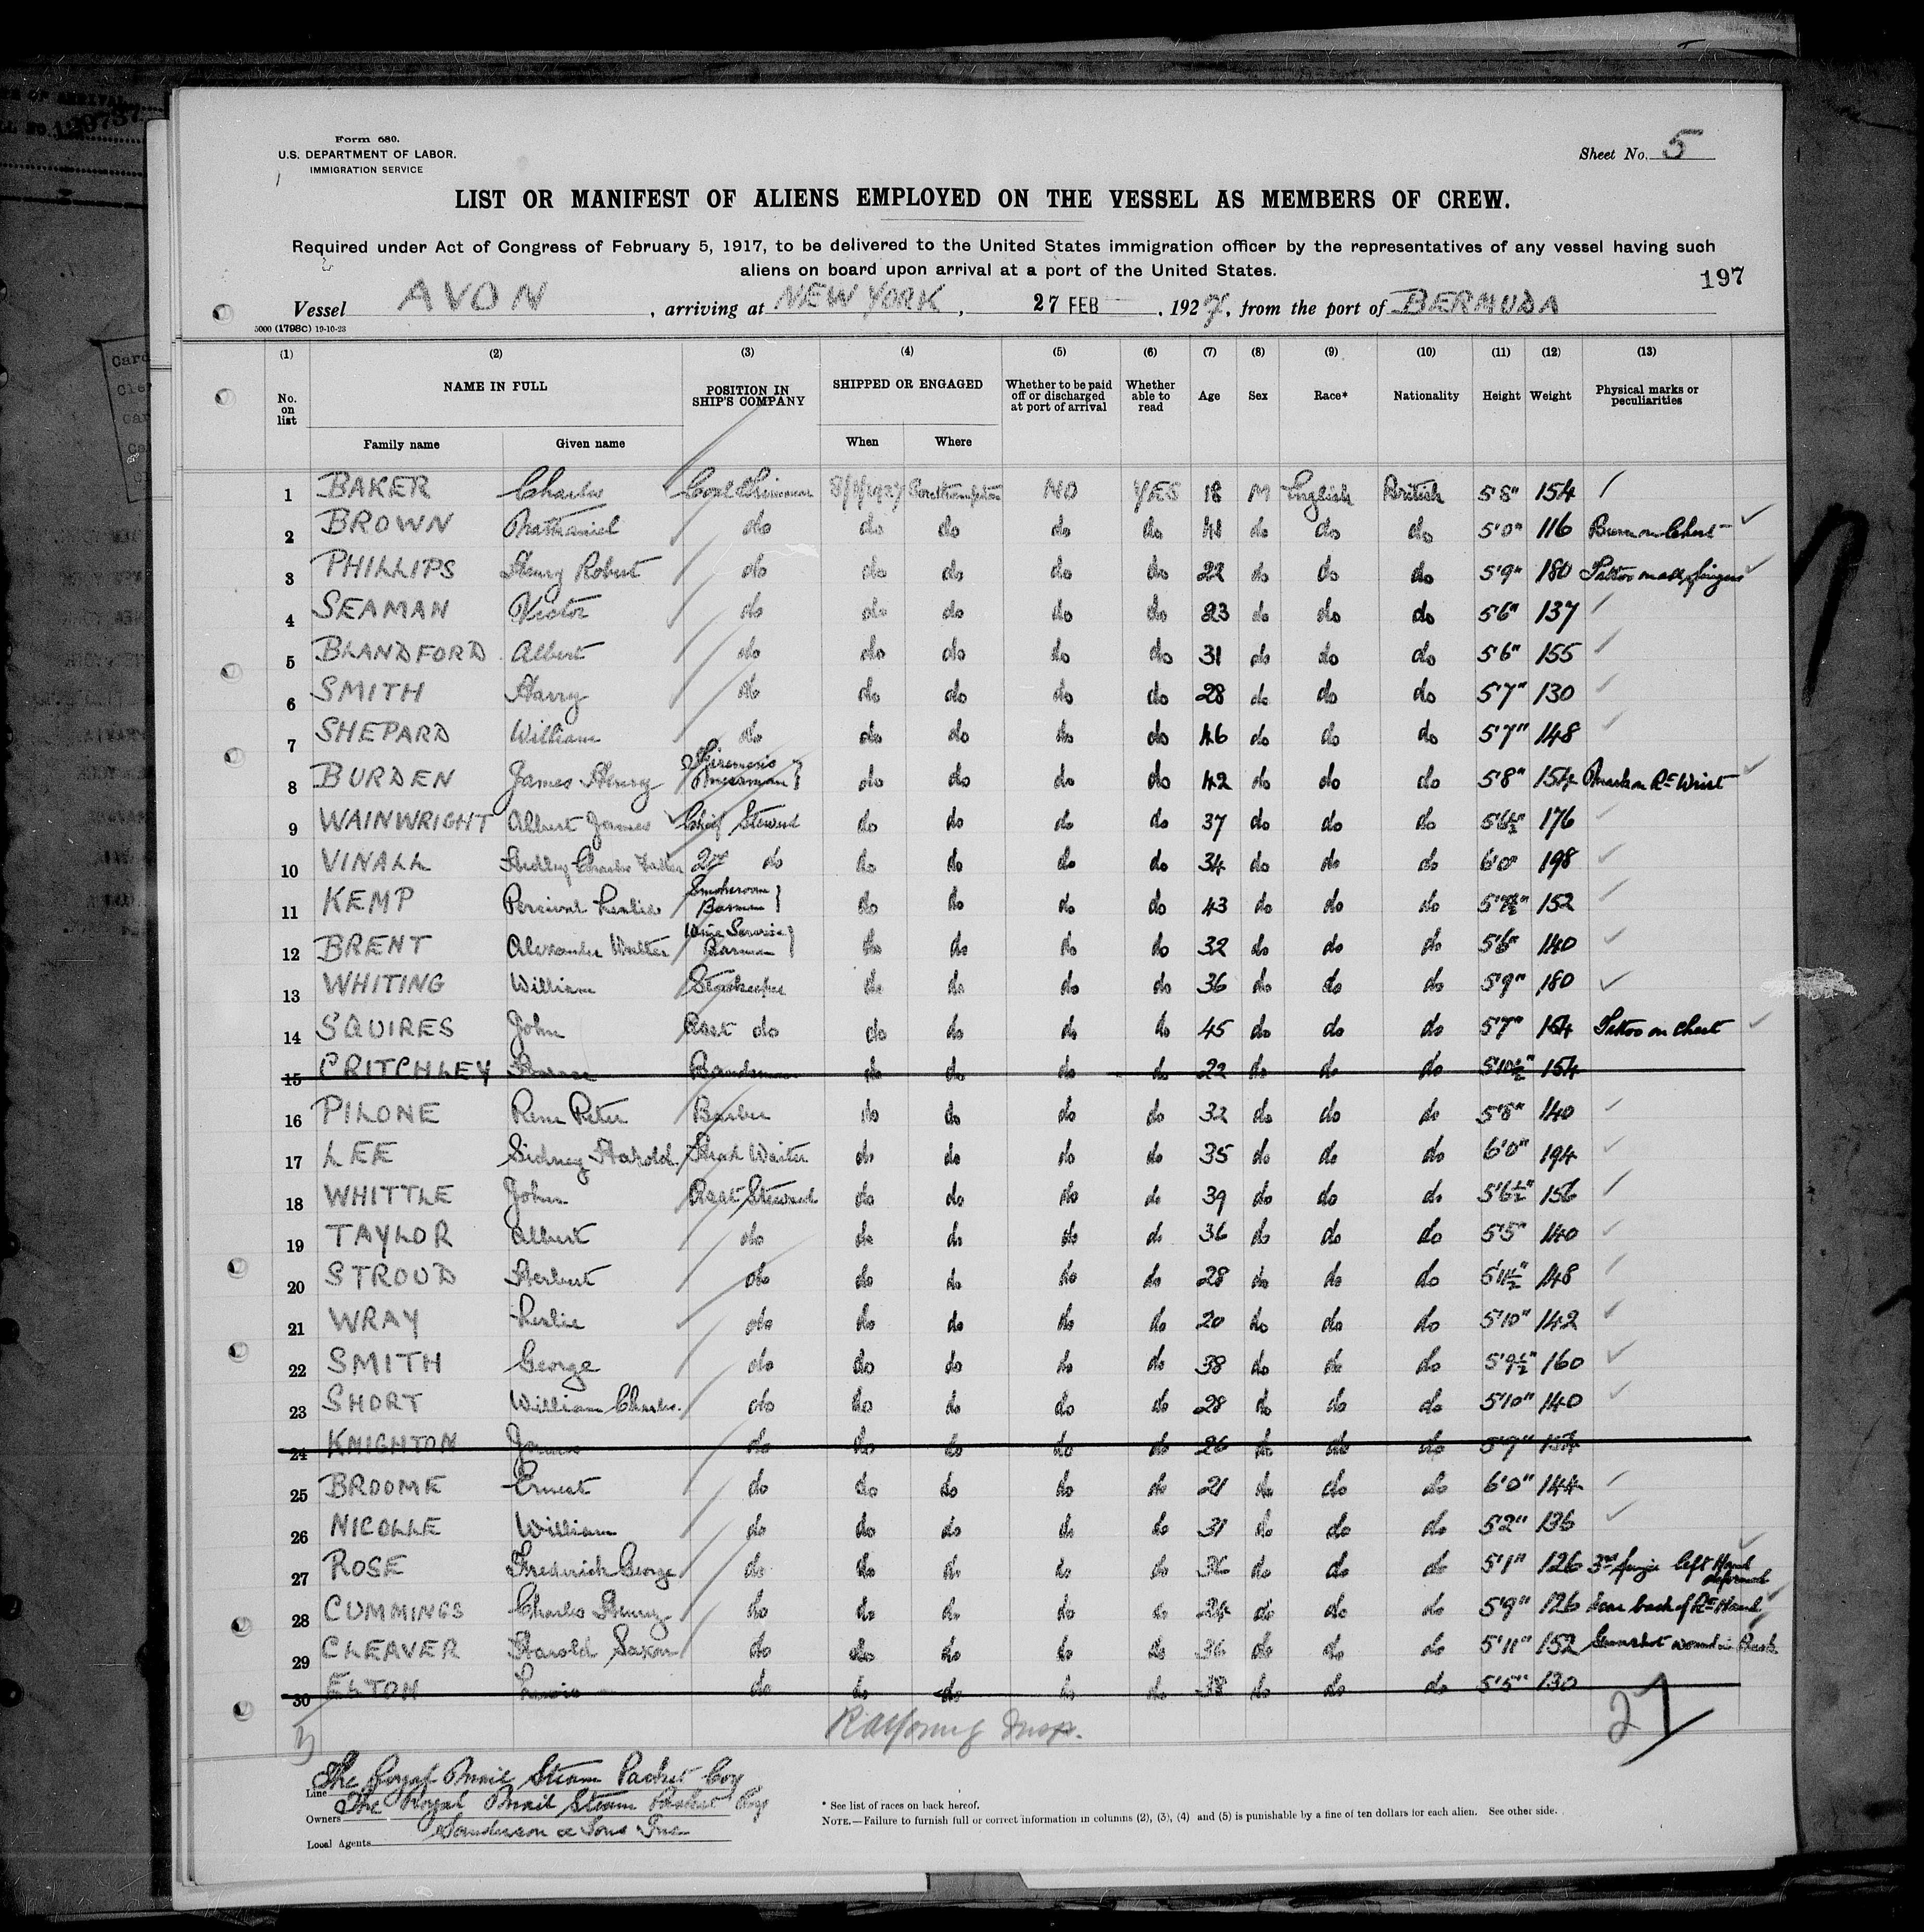 Form 680.
U.S. DEPARTMENT OF LABOR.
IMMIGRATION SERVICE
Sheet No. 5
LIST OR MANIFEST OF ALIENS EMPLOYED ON THE VESSEL AS MEMBERS OF CREW.
Required under Act of Congress of February 5, 1917, to be delivered to the United States immigration officer by the representatives of any vessel having such
aliens on board upon arrival at a port of the United States.
197
Vessel AVON, arriving at NEW YORK, 27 FEB, 1927, from the port of BERMUDA
5000 (1798C) 19-10-23
(1) (2) (3) (4) (5) (6) (7) (8) (9) (10) (11) (12) (13)
No. on list NAME IN FULL POSITION IN SHIP'S COMPANY SHIPPED OR ENGAGED Whether to be paid off or discharged at port of arrival Whether able to read Age Sex Race* Nationality Height Weight Physical marks or peculiarities
Family name Given name When Where
1 BAKER Charles Southampton NO YES 18 M English British 5'8" 154
2 BROWN Nathaniel do do do do do do do do 5'0" 116 Burn on Chest
3 PHILLIPS Henry Robert do do do do do 22 do do do 5'9" 180 Tattoo on all fingers
4 SEAMAN Victor do do do do do 23 do do do 5'6" 137
5 BLANDFORD Albert do do do do do 31 do do do 5'6" 155
6 SMITH Harry do do do do do 28 do do do 5'7" 130
7 SHEPARD William do do do do do 46 do do do 5'7" 148
8 BURDEN James Henry Firemen's Messman do do do do 42 do do do 5'8" 154 Mark on Rt Wrist
9 WAINWRIGHT Albert James Chief Steward do do do do 37 do do do 5'6½" 176
10 VINALL Charles 2nd do do do do do 34 do do do 6'0" 198
11 KEMP Percival Leslie Smokeroom Barman do do do do 43 do do do 152
12 BRENT Alexander Walter Wine Service Barman do do do do 32 do do do 5'6" 140
13 WHITING William Storekeeper do do do do 36 do do do 5'9" 180
14 SQUIRES John Asst do do do do do 45 do do do 5'7" 164 Tattoo on Chest
15 CRITCHLEY Bandsman do do do do 22 do do do 5'10½" 154
16 PILONE Rene Peter Barber do do do do 32 do do do 5'8" 140
17 LEE Sidney Harold Head Waiter do do do do 35 do do do 6'0" 194
18 WHITTLE John Asst Steward do do do do 39 do do do 5'6½" 156
19 TAYLOR Albert do do do do do 36 do do do 5'5" 140
20 STROUD Herbert do do do do do 28 do do do 5'11½" 148
21 WRAY Leslie do do do do do 20 do do do 5'10" 142
22 SMITH George do do do do do 38 do do do 5'9½" 160
23 SHORT William Charles. do do do do do 28 do do do 5'10" 140
24 KNIGHTON James do do do do do 26 do do do 5'9" 154
25 BROOME Ernest do do do do do 21 do do do 6'0" 144
26 NICOLLE William do do do do do 31 do do do 5'2" 136
27 ROSE Frederick George do do do do do 36 do do do 5'1" 126 3rd finger left Hand deformed
28 CUMMINGS Charles Henry do do do do do 24 do do do 5'9" 126 Scar back of Rt Hand
29 CLEAVER Harold Saxon do do do do do 36 do do do 5'11" 152 Gunshot wound in Back
30 ELTON Lewis do do do do do 38 do do do 5'5" 130
27
Insp.
Line The Royal Mail Steam Packet Coy
Owners The Royal Mail Steam Packet Coy
Local Agents Sanderson & Sons Inc
* See list of races on back hereof.
NOTE.—Failure to furnish full or correct information in columns (2), (3), (4) and (5) is punishable by a fine of ten dollars for each alien. See other side.